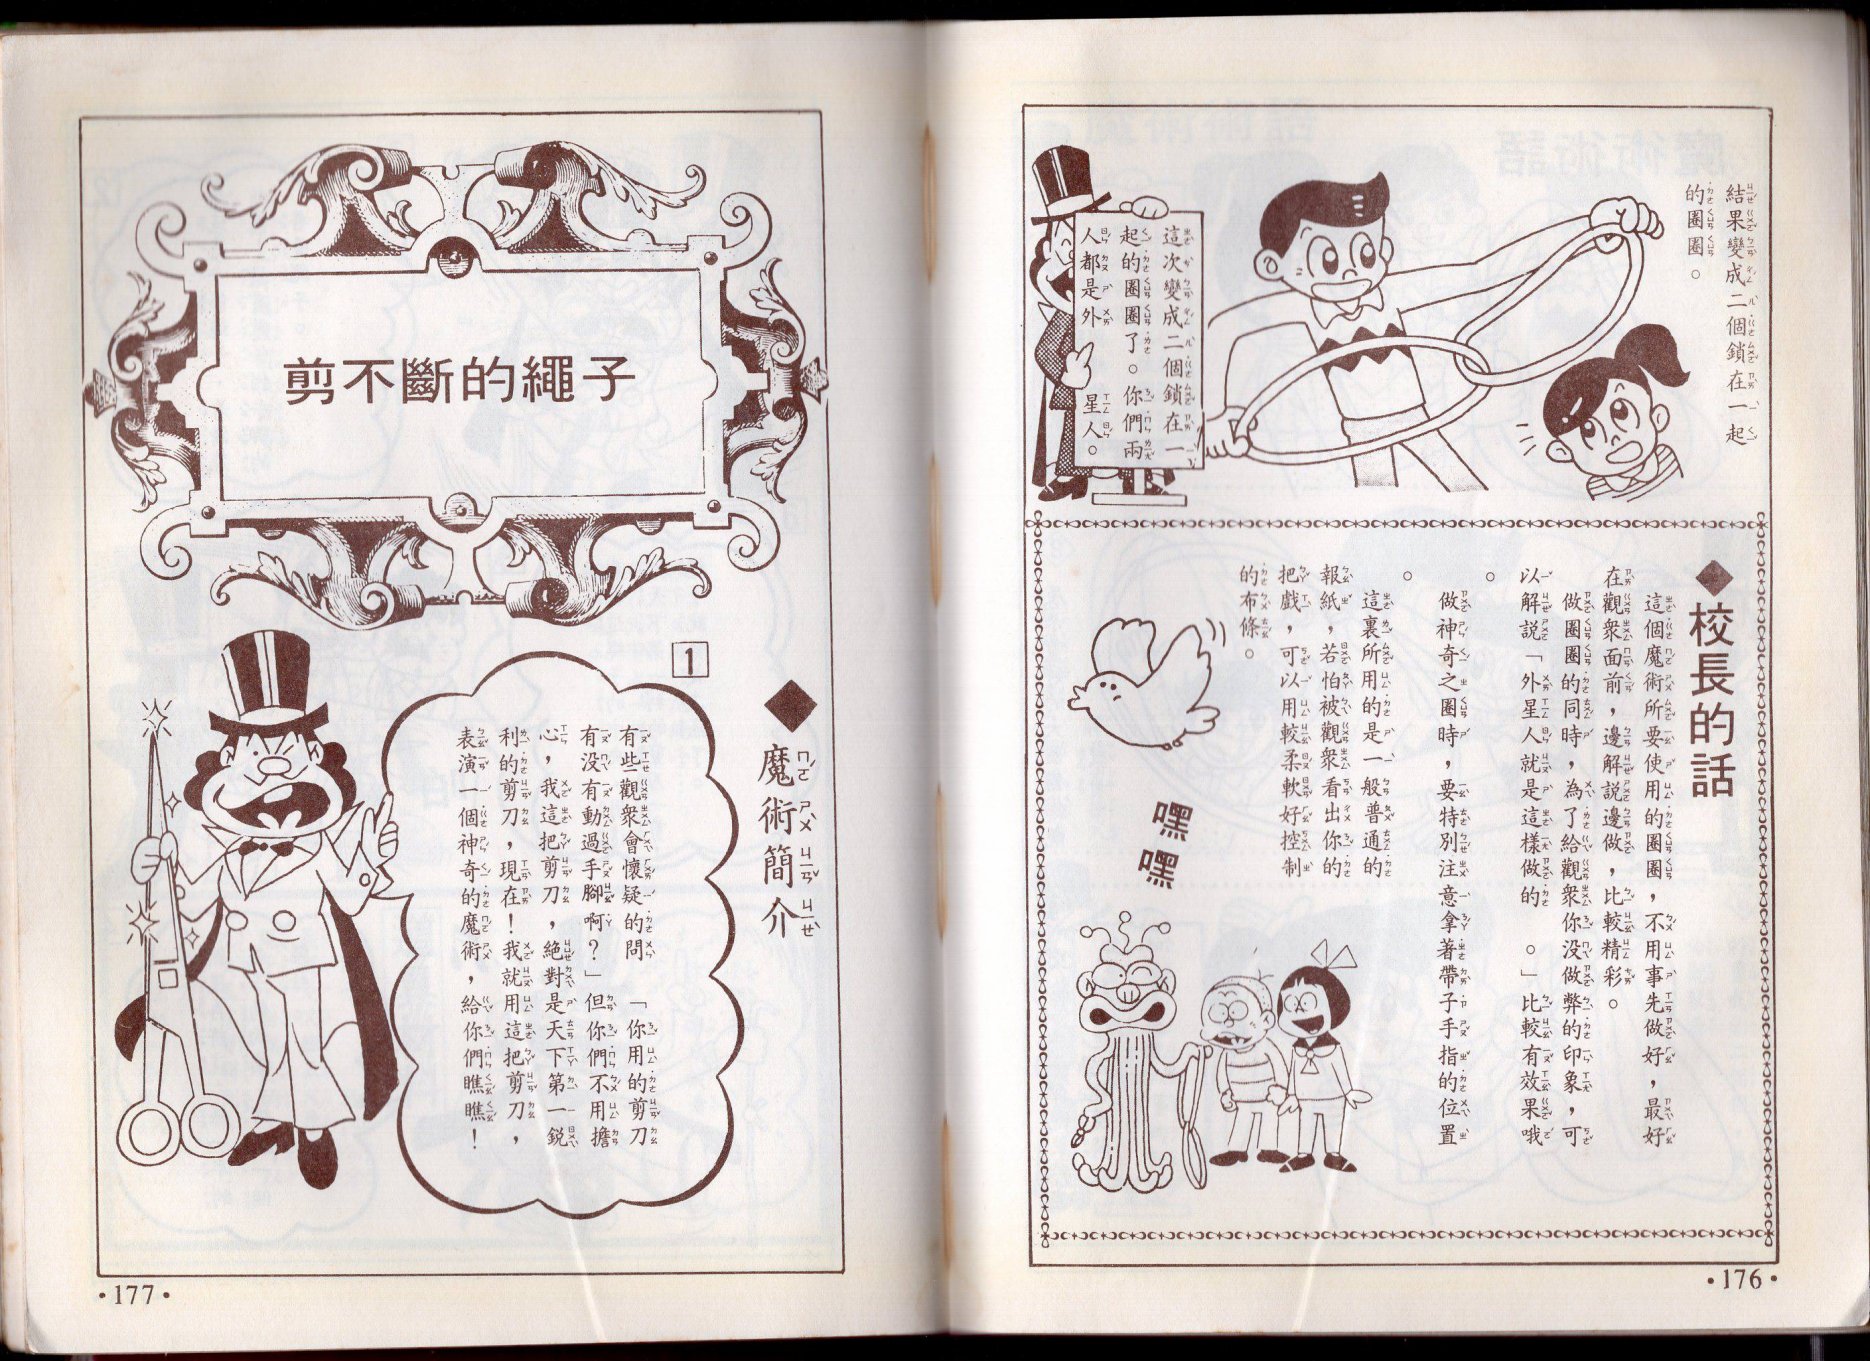 結果變成二個鎖在一起
的圈圈。
這次變成二個鎖在一
起的圈圈了。你們兩
人都是外星人。
◆校長的話
這個魔術所要使用的圈圈，不用事先做好，最好
在觀衆面前，邊解説邊做，比較精彩。
做圈圈的同時，為了給觀衆你没做弊的印象，可
以解説「外星人就是這樣做的。」比較有效果哦
。
做神奇之圈時，要特別注意拿著帶子手指的位置
。
這裏所用的是一般普通的
報紙，若怕被觀衆看出你的
把戲，可以用較柔軟好控制
的布條。
嘿
嘿
·176·
剪不斷的繩子
◆魔術簡介
1
有些觀衆會懷疑的問「你用的剪刀
有没有動過手腳啊？」但你們不用擔
心，我這把剪刀，絕對是天下第一鋭
利的剪刀，現在！我就用這把剪刀，
表演一個神奇的魔術，給你們瞧瞧！
·177·